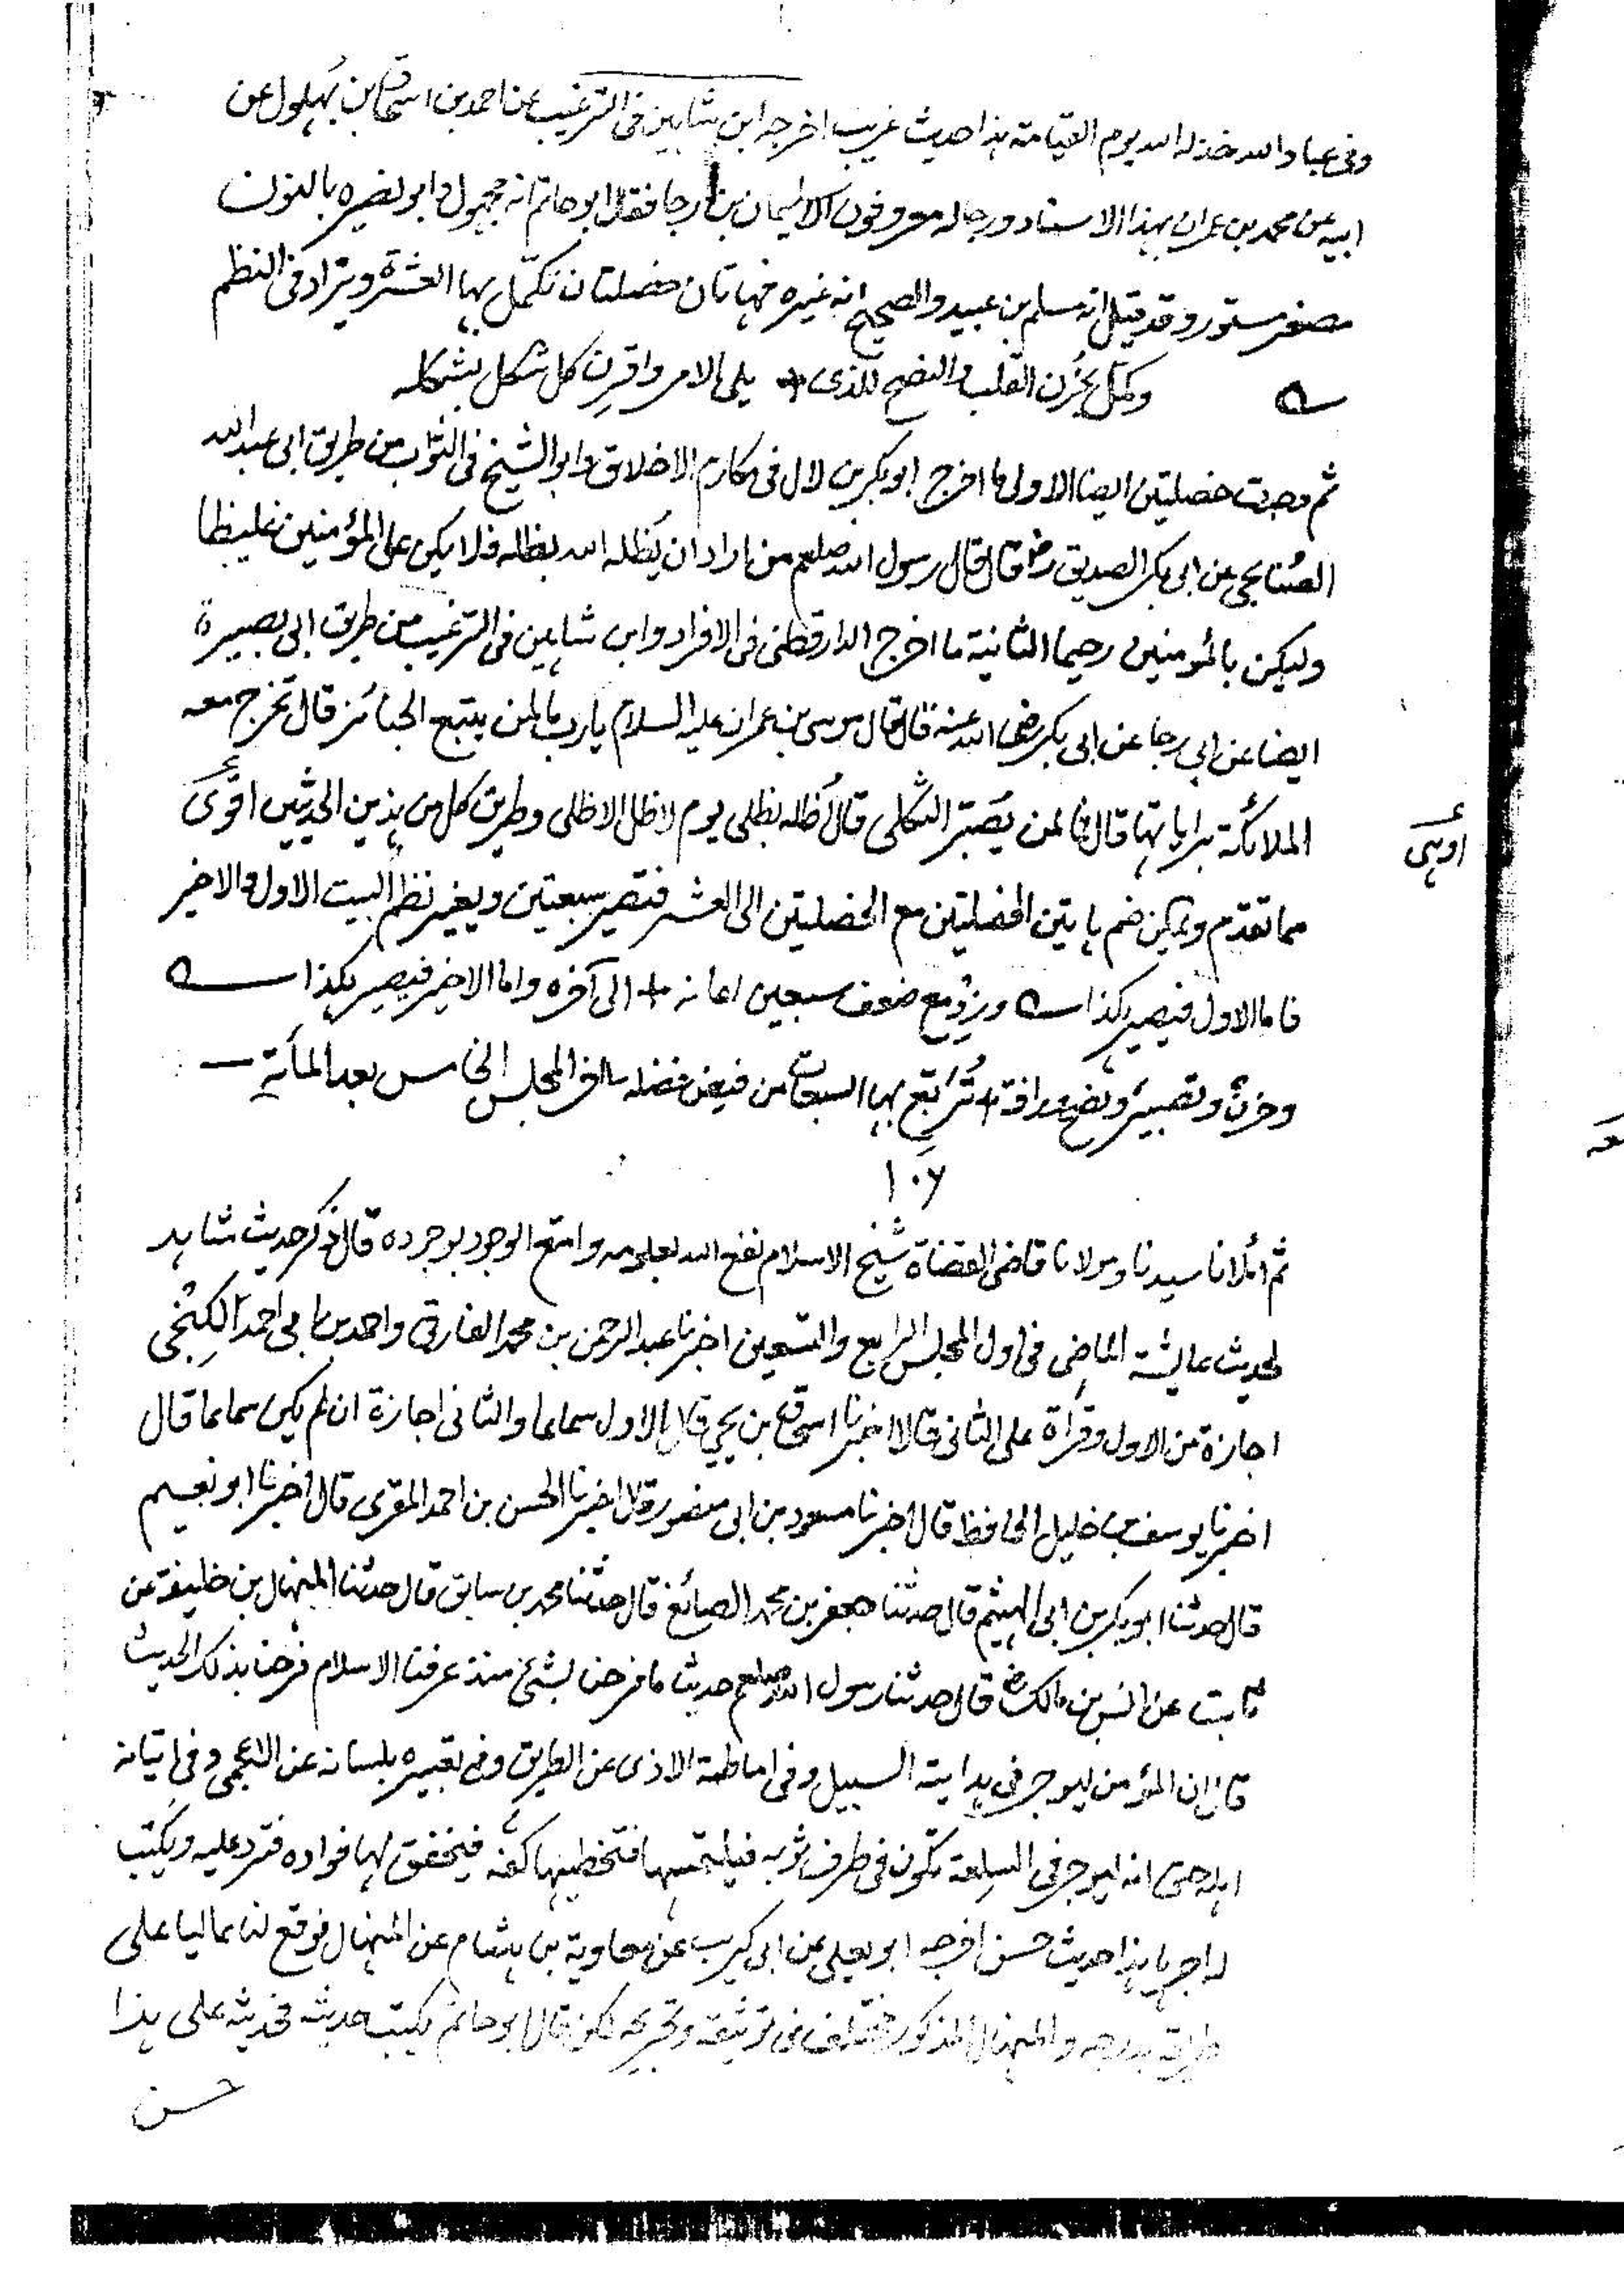 وفى عباد الله خذله الله يوم القيامة هذا حديث غريب اخرجه ابن شاهين فى الترغيب عن احمد بن اسحاق بن بُهلول عن
ابيه عن محمد بن عمران بهذا الاسناد ورجاله معروفون الا سليمان بن رجا فقال ابو حاتم انه مجهول وابو نضيره بالنون
مصغر مستور وقد قيل انه مسلم بن عبيد والصحيح انه غيره فهاتان خصلتان تكمّل بها العشرة ويزاد فى النظم
وكمّل بحُزن القلب والنصح للذى + يلى الامر واقرِن كل شكل بشكله
ثم وجدت خصلتين ايضا الاولى ما اخرج ابو بكر بن لال فى مكارم الاخلاق وابو الشيخ فى الثواب من طريق ابى عبد الله
الصُنابحى عن ابى بكر الصديق رض قال قال رسول الله صلعم من اراد ان يُظله الله بظله فلا يكن على المؤمنين غليظا
وليكن بالمؤمنين رحيما الثانية ما اخرج الدارقطنى فى الافراد وابن شاهين فى الترغيب من طريق ابى بصيرة
ايضا عن ابى رجا عن ابى بكر رضى الله عنه قال قال موسى بن عمران عليه السلام يا رب ما لمن يتبع الجنائز قال تخرج معه
الملائكة براياتها قال فما لمن يُصَبّر الثكلى قال أظله بظلى يوم لا ظل الا ظلى وطريق كل من هذين الحديثين اقوى
اوهى
مما تقدم ويمكن ضم هاتين الخصلتين مع الخصلتين الى العشر فتصير سبعتين ويغير نظم البيت الاول والاخير
فاما الاول فيصير هكذا وزِد مع ضعف سبعين اعانة + الى آخره واما الاخير فيصير هكذا
وحزن وتصبير ونصح ورافة + تُرَبّع بها السبعات من فيض فضله آخر المجلس الخامس بعد المأية
١٠٦
ثم أملانا سيدنا ومولانا قاضى القضاة شيخ الاسلام نفع الله بعلومه وامتع الوجود بوجوده قال ذكر حديث شاهد
لحديث عايشة الماضِى فى اول المجلس الرابع والتسعين اخبرنا عبد الرحمن بن محمد الفارقى واحمد بن احمد الكِنجى
اجازة من الاول وقرأة على الثانى قالا اخبرنا اسحق بن يحيى قال الاول سماعا والثانى اجازة ان لم يكن سماعا قال
اخبرنا يوسف بن خليل الحافظ قال اخبرنا مسعود بن ابى منصور قال اخبرنا الحسن بن احمد المقرى قال اخبرنا ابو نعيم
قال حدثنا ابو بكر بن ابى الهيثم قال حدثنا جعفر بن محمد الصائغ قال حدثنا محمد بن سابق قال حدثنا المنهال بن خليفة عن
ثابت عن انس بن مالك رض قال حدثنا رسول الله صلعم حديث ما فرحنا بشئ منذ عرفنا الاسلام فرحنا بذلك الحديث
قال ان المؤمن ليوجر فى هداية السبيل وفى اماطة الاذى عن الطريق وفى تعبيره بلسانه عن الاعجمى وفى إتيانه
اهله حتى انه ليوجر فى السلعة تكون فى طرف ثوبه فيلتمسها فتخطيها كفه فيخفق لها فواده فترد عليه ويكتب
له اجرها هذا حديث حسن اخرجه ابو يعلى عن ابى كريب عن معاوية بن هشام عن المنهال فوقع لنا عاليا على
طريقه بدرجه والمنهال المذكور مختلف فى توثيقه وتجريحه لكن قال ابو حاتم يكتب حديثه فحديثه على هذا
حسن